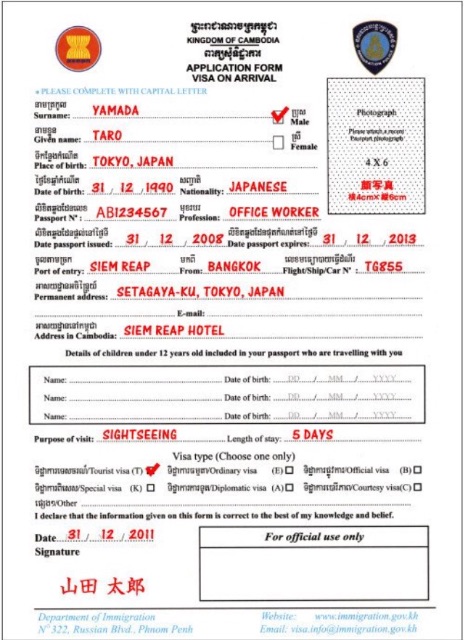 ព្រះរាជាណាចក្រកម្ពុជា
KINGDOM OF CAMBODIA
ពាក្យសុំទិដ្ឋាការ
APPLICATION FORM
VISA ON ARRIVAL
PLEASE COMPLETE WITH CAPITAL LETTER
នាមត្រកូល
Surname: YAMADA
ប្រុស
Male
នាមខ្លួន
Given name: TARO
ស្រី
Female
Photograph
Please attach a recent
Passport photograph
4 X 6
顔写真
横4cm× 縦6cm
ទីកន្លែងកំណើត
Place of birth: TOKYO, JAPAN
ថ្ងៃខែឆ្នាំកំណើត សញ្ជាតិ
Date of birth: 31 / 12 / 1990 Nationality: JAPANESE
លិខិតឆ្លងដែនលេខ មុខរបរ
Passport N°: AB1234567 Profession: OFFICE WORKER
Date passport issued: 31 / 12 / 2008 Date passport expires: 31 / 12 / 2013
ចូលតាមច្រក មកពី លេខមធ្យោបាយធ្វើដំណើរ
Port of entry: SIEM REAP From: BANGKOK Flight/Ship/Car N°: TG855
អាសយដ្ឋានអចិន្ត្រៃយ៍
Permanent address: SETAGAYA-KU, TOKYO, JAPAN
E-mail:
អាសយដ្ឋាននៅកម្ពុជា
Address in Cambodia: SIEM REAP HOTEL
Details of children under 12 years old included in your passport who are travelling with you
Name: Date of birth: DD / MM / YYYY
Name: Date of birth: DD / MM / YYYY
Name: Date of birth: DD / MM / YYYY
Purpose of visit: SIGHTSEEING Length of stay: 5 DAYS
Visa type (Choose one only)
ទិដ្ឋាការទេសចរណ៍/Tourist visa (T) ទិដ្ឋាការធម្មតា/Ordinary visa (E) ទិដ្ឋាការផ្លូវការ/Official visa (B)
ទិដ្ឋាការពិសេស/Special visa (K) ទិដ្ឋាការការទូត/Diplomatic visa (A) /Courtesy visa(C)
ផ្សេងៗ/Other
I declare that the information given on this form is correct to the best of my knowledge and belief.
Date 31 / 12 / 2011
Signature
山田 太郎
For official use only
Department of Immigration
N° 322, Russian Blvd., Phnom Penh
Website: www.immigration.gov.kh
Email: visa.info@immigration.gov.kh